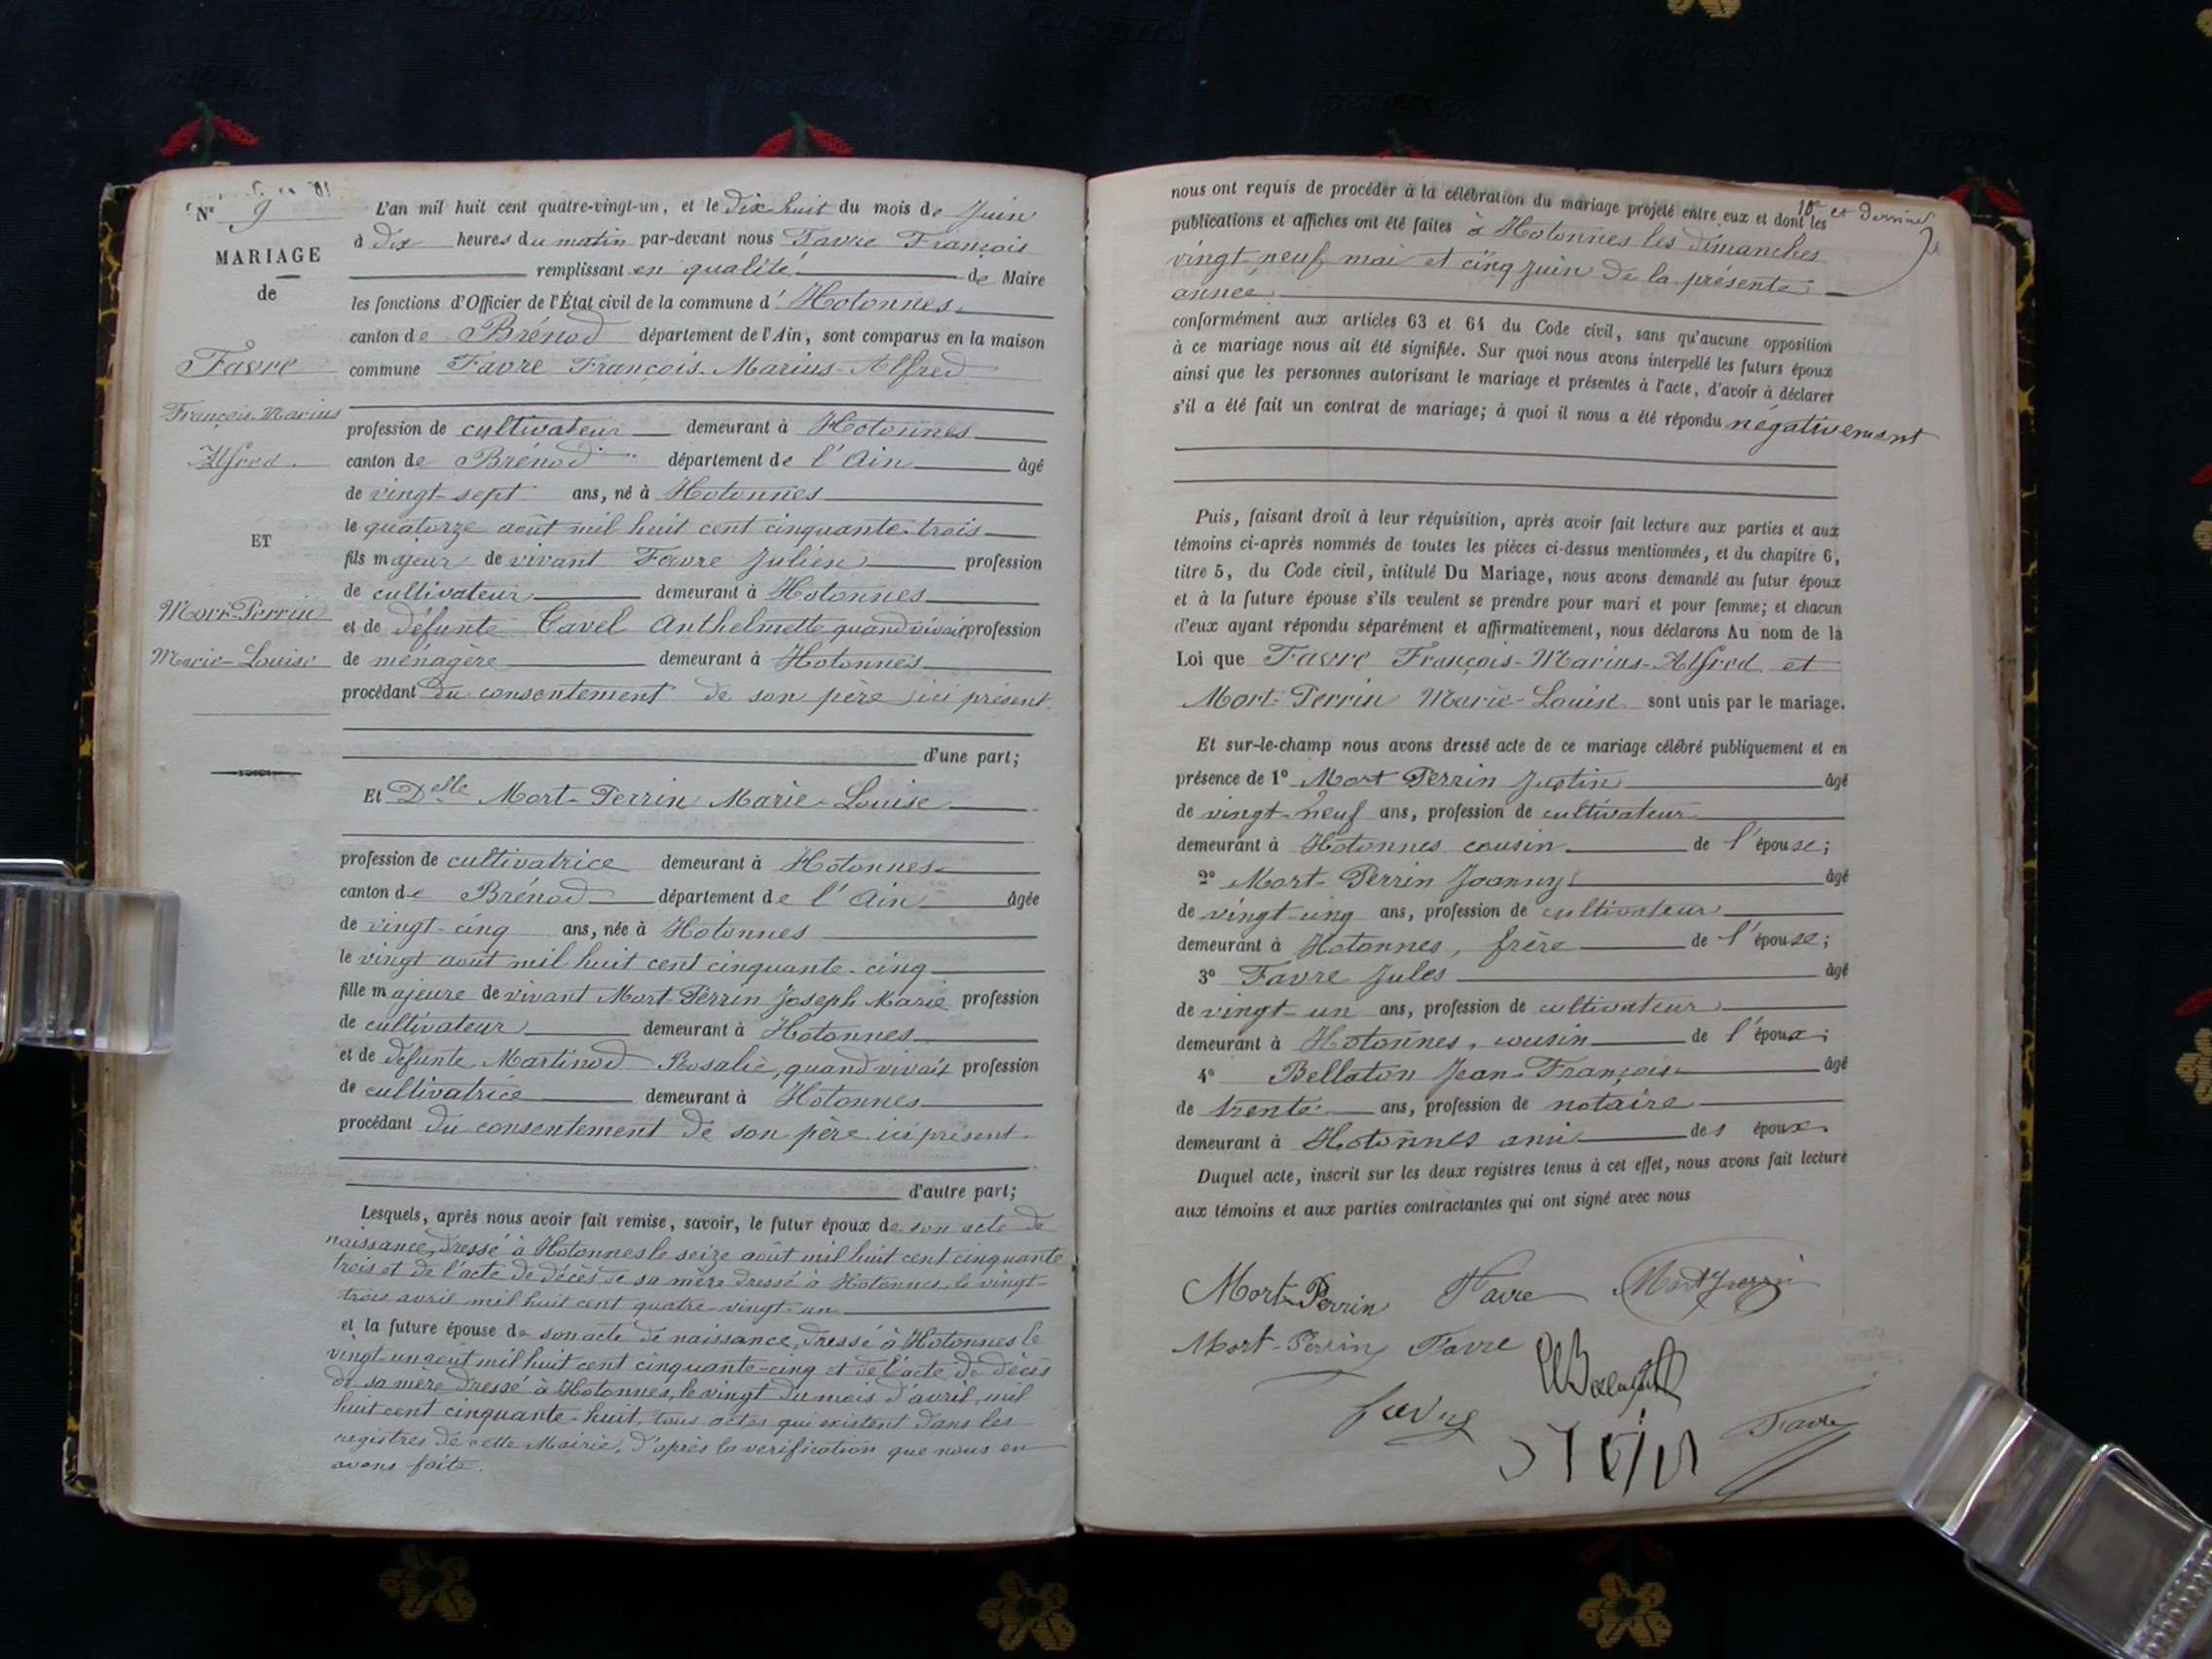 Nº 9
MARIAGE
de
Favre
François-Marius
Alfred.
ET
Mort-Perrin
Marie-Louise
L'an mil huit cent quatre-vingt-un, et le dix huit du mois de Juin
à dix heures du matin par-devant nous Favre François
remplissant en qualité de Maire
les fonctions d'Officier de l'État civil de la commune d'Hotonnes
canton de Brénod département de l'Ain, sont comparus en la maison
commune Favre François-Marius-Alfred
profession de cultivateur demeurant à Hotonnes
canton de Brénod département de l'Ain âgé
de vingt-sept ans, né à Hotonnes
le quatorze août mil huit cent cinquante-trois
fils majeur de vivant Favre Julien profession
de cultivateur demeurant à Hotonnes
et de défunte Cavel Anthelmette quand vivait profession
de ménagère demeurant à Hotonnes
procédant du consentement de son père ici présent.
d'une part;
Et Delle Mort-Perrin Marie-Louise
profession de cultivatrice demeurant à Hotonnes
canton de Brénod département de l'Ain âgée
de vingt-cinq ans, née à Hotonnes
le vingt août mil huit cent cinquante-cinq
fille majeure de vivant Mort-Perrin Joseph Marie profession
de cultivateur demeurant à Hotonnes
et de défunte Martinod Rosalie, quand vivait profession
de cultivatrice demeurant à Hotonnes
procédant du consentement de son père ici présent.
d'autre part;
Lesquels, après nous avoir fait remise, savoir, le futur époux de son acte de
naissance, dressé à Hotonnes le seize août mil huit cent cinquante
trois et de l'acte de décès de sa mère dressé à Hotonnes le vingt-
trois avril mil huit cent quatre-vingt-un
et la future épouse de son acte de naissance, dressé à Hotonnes le
vingt-un août mil huit cent cinquante-cinq et de l'acte de décès
de sa mère dressé à Hotonnes, le vingt du mois d'avril mil
huit cent cinquante-huit, tous actes qui existent dans les
registres de cette Mairie, d'après la verification que nous en
avons faite.
10e et dernier
nous ont requis de procéder à la célébration du mariage projeté entre eux et dont les
publications et affiches ont été faites à Hotonnes les dimanches
vingt-neuf mai et cinq Juin de la présente
année
conformément aux articles 63 et 64 du Code civil, sans qu'aucune opposition
à ce mariage nous ait été signifiée. Sur quoi nous avons interpellé les futurs époux
ainsi que les personnes autorisant le mariage et présentes à l'acte, d'avoir à déclarer
s'il a été fait un contrat de mariage; à quoi il nous a été répondu négativement
Puis, faisant droit à leur réquisition, après avoir fait lecture aux parties et aux
témoins ci-après nommés de toutes les pièces ci-dessus mentionnées, et du chapitre 6,
titre 5, du Code civil, intitulé Du Mariage, nous avons demandé au futur époux
et à la future épouse s'ils veulent se prendre pour mari et pour femme; et chacun
d'eux ayant répondu séparément et affirmativement, nous déclarons Au nom de la
Loi que Favre François-Marius-Alfred et
Mort-Perrin Marie-Louise sont unis par le mariage.
Et sur-le-champ nous avons dressé acte de ce mariage célébré publiquement et en
présence de 1º Mort Perrin Justin âgé
de vingt-neuf ans, profession de cultivateur
demeurant à Hotonnes cousin de l'épouse;
2º Mort-Perrin Joanny âgé
de vingt-cinq ans, profession de cultivateur
demeurant à Hotonnes, frère de l'épouse;
3º Favre Jules âgé
de vingt-un ans, profession de cultivateur
demeurant à Hotonnes, cousin de l'époux;
4º Bellaton Jean-François âgé
de trente ans, profession de notaire
demeurant à Hotonnes ami des époux.
Duquel acte, inscrit sur les deux registres tenus à cet effet, nous avons fait lecture
aux témoins et aux parties contractantes qui ont signé avec nous
Mort-Perrin Favre Mort Perrin
Mort-Perrin Favre
Favre